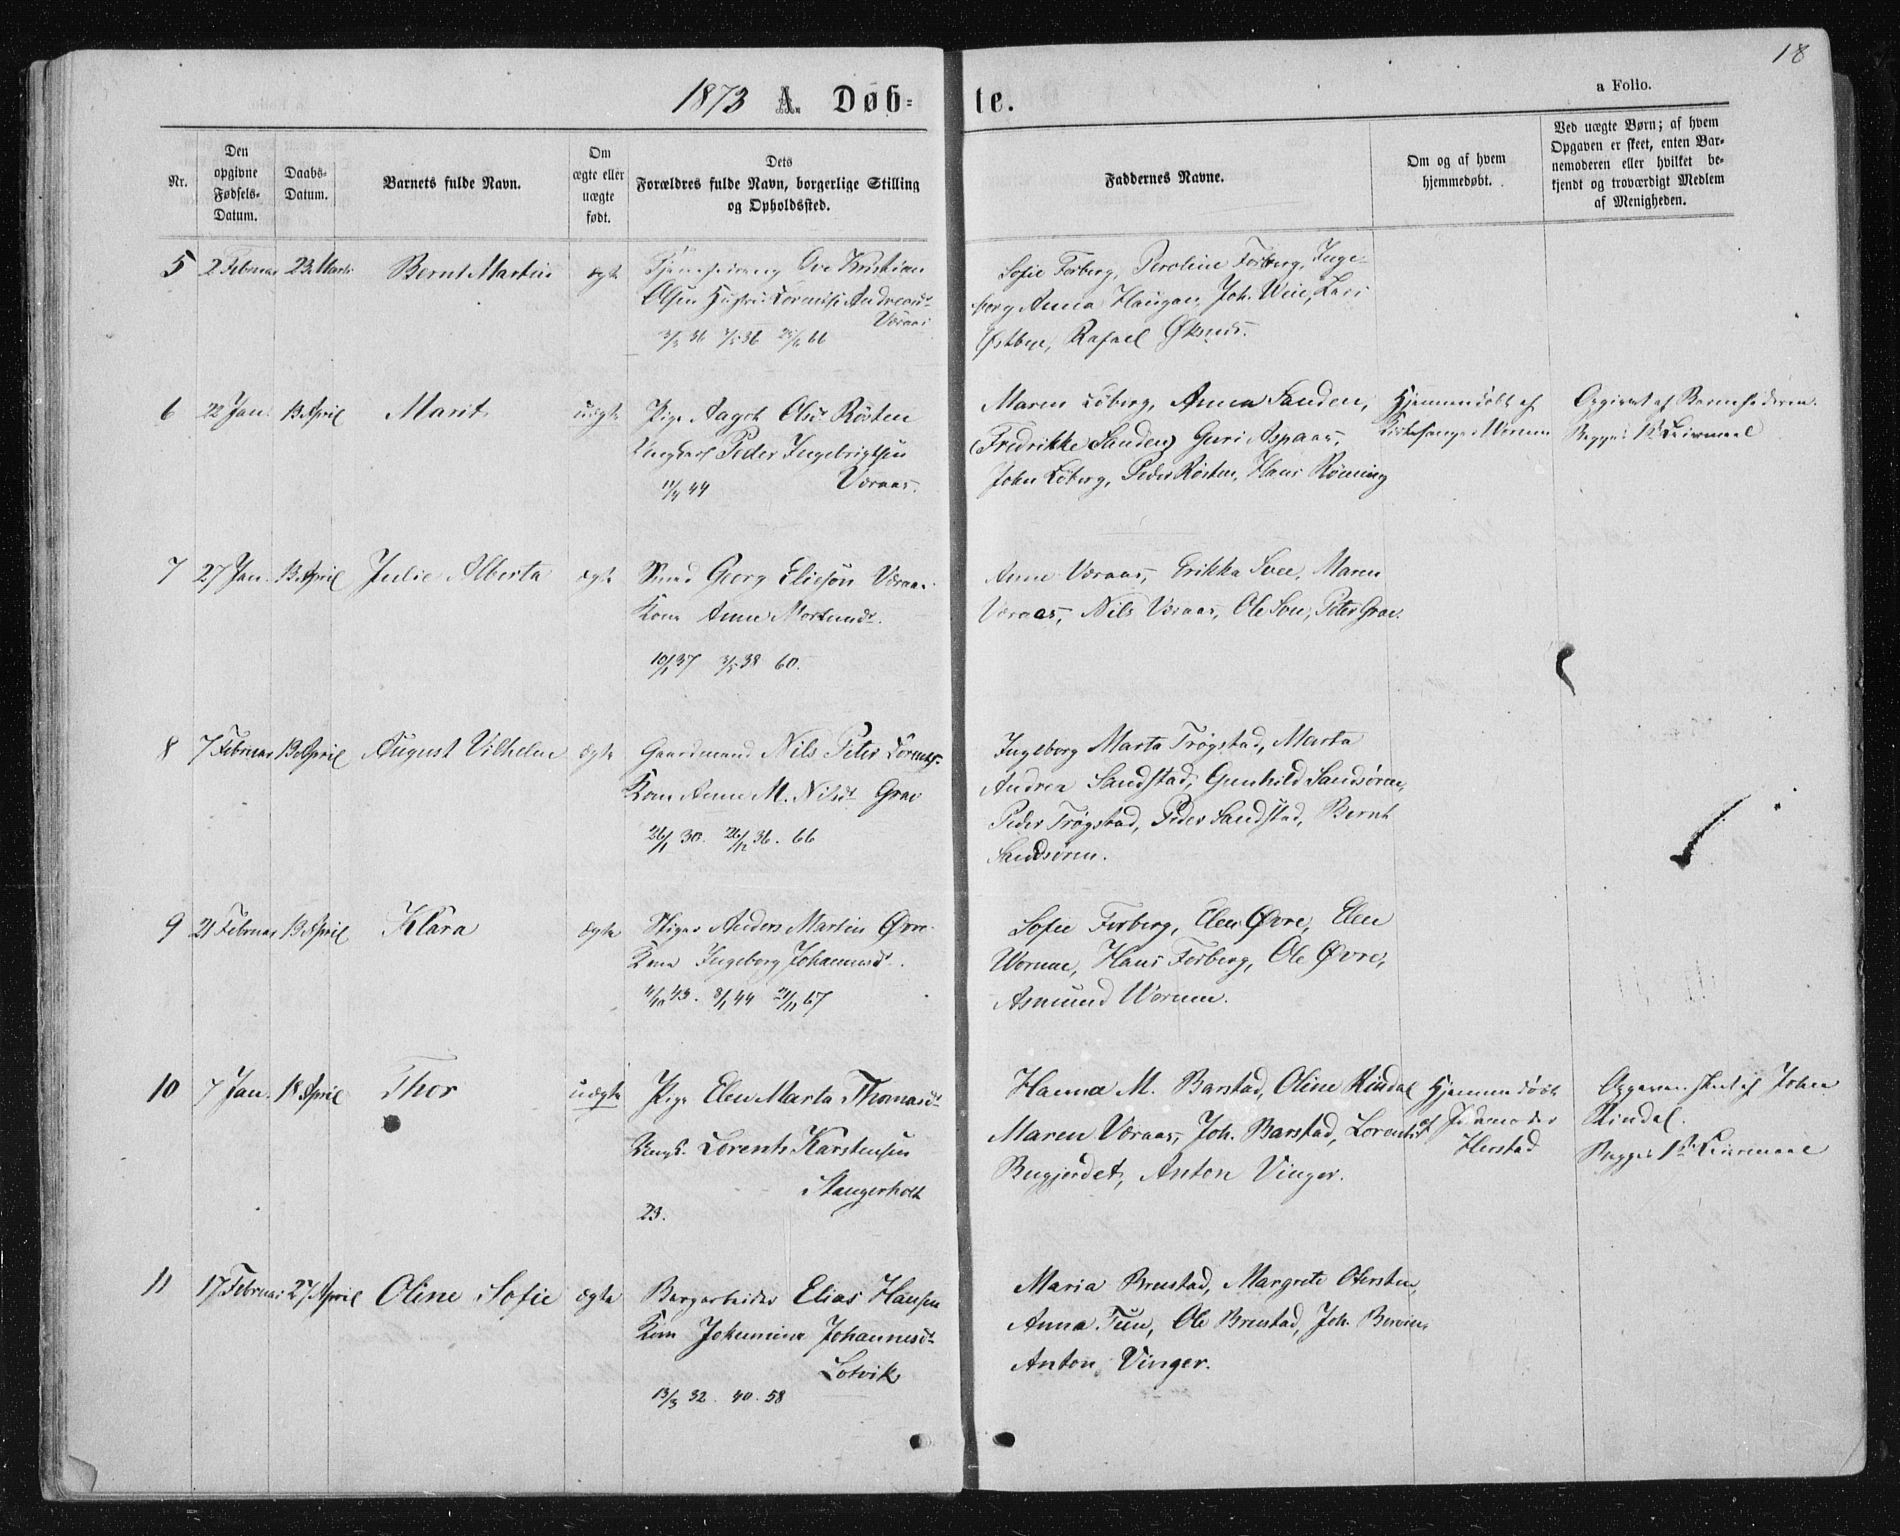 18
1873 A. Døb= te.
a Folio.
Nr.
Den opgivne Fødsels-Datum.
Daabs-Datum.
Barnets fulde Navn.
Om ægte eller uægte født.
Dets Forældres fulde Navn, borgerlige Stilling og Opholdssted.
Faddernes Navne.
Om og af hvem hjemmedøbt.
Ved uægte Børn; af hvem Opgaven er skeet, enten Barnemoderen eller hvilket bekjendt og troværdigt Medlem af Menigheden.
5 2 Februar 23 Marts Bernt Martin ægte Ove Kristian
Olsen Hustru Andreasd.
Væraas
36 36 66
Sofie Forberg, Peroline Forberg, Inge-
borg Anna Haugan, Joh. Wiie, Lars
Østbye, Rafael Øksnes.
6 22 Jan. 13 April Marit uægte Pige Aagot Olsd. Røsten
Ungkarl Peder Ingebrigtsen
Væraas.
11/4 44
Maren Loberg, Anna Sanden,
Fredrikke Sanden, Guri Aspaas,
John Loberg, Peder Røsten, Hans Rønning
Hjemmedøbt af
Kirkesanger Worum
Opgivet af Barnefaderen.
Begges 1ste Leiermaal
7 27 Jan. 13 April Julie Alberta ægte Smed Georg Eliesøn Væraas
Kone Anne Mortensd.
10/1 37 3/5 38 60.
Anne Væraas, Erikka Svee, Maren
Væraas, Nils Væraas, Ole Svee, Peter Grae.
8 7 Februar 13 April August Vilhelm ægte Gaardmand Nils Peter Lorents.
Kone Anne M. Nilsd. Grae
26/1 30. 26/12 36. 66
Ingeborg Marta Trøgstad, Marta
Andrea Sandstad, Gunhild Sandsøren,
Peder Trøgstad, Peder Sandstad, Bernt
Sandsøren.
9 21 Februar 13 April Klara ægte Stiger Anders Martin Øvre
Kone Ingeborg Johannesd.
4/10 43. 8/1 44 21/11 67
Sofie Forberg, Elen Øvre, Elen
Worum, Hans Forberg, Ole Øvre,
Asmund Worum.
10 7 Jan. 18 April Thor uægte Pige Elen Marta Thomasd.
Ungk. Lorents Karstensen
Stangerholt
23.
Hanna M. Barstad, Oline Rindal
Maren Væraas, Joh. Barstad, Lorents
Bugjerdet, Anton Vinger.
Hjemmedøbt
af Jordemoder
Herstad
Opgaven skeet af John
Rindal.
Begges 1ste Leiermaal
11 17 Februar 27 April Oline Sofie ægte Bergarbeider Elias Hansen
Kone Johannesd.
Lotvik
13/3 32. 40. 58
Maria Brustad, Margrete Obersten,
Anna Tun, Ole Brustad, Joh.
Anton Vinger.